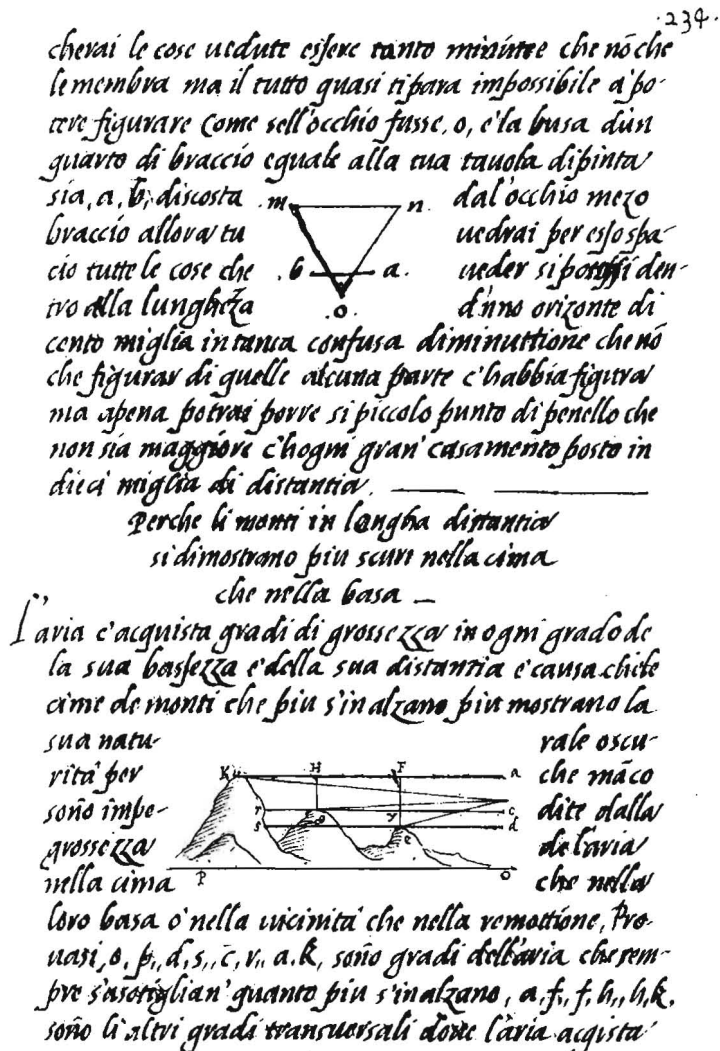 ·234·
cherai le cose uedute essere tanto minime che nõ che
le membra ma il tutto quasi ti para impossibile a po-
tere figurare Come sell'occhio fusse, o, e la busa d'un
quarto di braccio eguale alla tua tauola dipinta
sia, a, b, discosta dal'occhio mezo
braccio allora tu uedrai per esso spa-
cio tutte le cose che ueder si possi den-
tro alla lungheza d'uno orizonte di
m n
b a
o
cento miglia in tanta confusa diminuttione che nõ
che figurar di quelle alcuna parte c'habbia figura
ma apena potrai porre si piccolo punto di penello che
non sia maggiore c'hogni gran' casamento posto in
dieci miglia di distantia.
Perche li monti in longha distantia
si dimostrano piu scuri nella cima
che nella basa
L'aria c'acquista gradi di grossezza in ogni grado de
la sua bassezza e della sua distantia e causa che le
cime de monti che piu s'inalzano piu mostrano la
sua natu- rale oscu-
rità per che mãco
soño impe- dite dalla
grossezza de l'aria
nella cima che nella
K H F a
r g v c
s e d
P O
loro basa o' nella uicinità che nella remottione, Pro-
uasi, o, p,, d, s,, c, r,, a. k, soño gradi dell'aria che sem-
pre s'asotiglian' quanto piu s'inalzano, a, f,, f, h,, h, k,
soño li altri gradi transuersali doue l'aria acqista